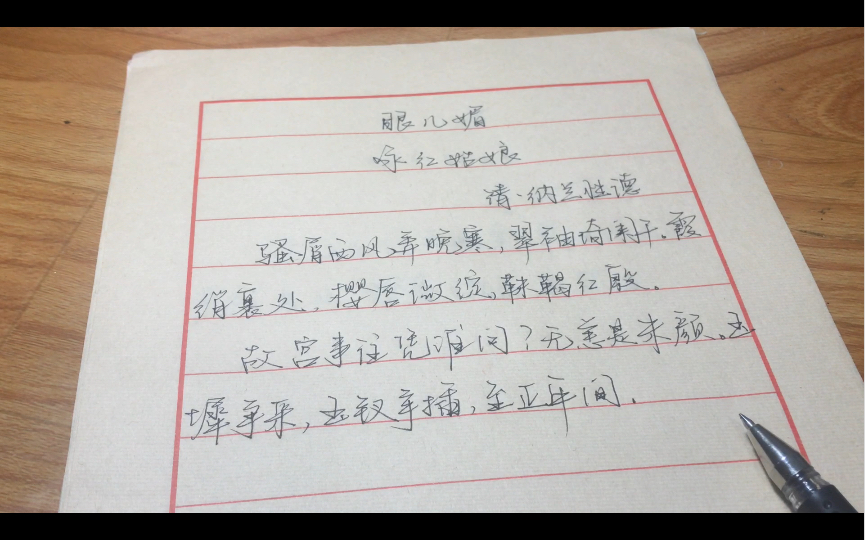 眼儿媚
咏红姑娘
清·纳兰性德
骚屑西风弄晚寒,翠袖倚阑干。霞
绡裹处,樱唇微绽,靺鞨红殷。
故宫事往凭谁问?无恙是朱颜。玉
墀争采,玉钗争插,至正年间。